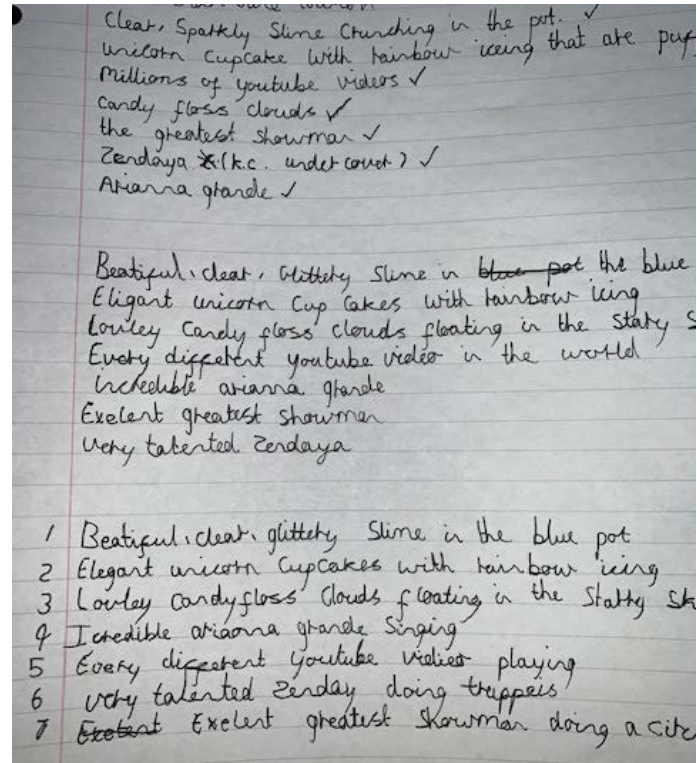 Clear, Sparkly Slime Crunching in the pot. ✓
unicorn Cupcake with rainbow iceing that are puf
Millions of youtube videos ✓
Candy floss clouds ✓
the greatest showman ✓
Zendaya (k.c. under cover) ✓
Arianna grande ✓
Beatiful, clear, Glittery Slime in blue pot the blue
Eligant unicorn Cup Cakes with rainbow icing
Louley Candy floss clouds floating in the Stary S
Every different youtube video in the world
increduble arianna grande
Exelent greatest Showman
very talented Zendaya
1 Beatiful, clear, glittery Slime in the blue pot
2 Elegant unicorn Cupcakes with rainbow icing
3 Louley Candyfloss Clouds floating in the Starry Sk
4 Icredible arianna grande Singing
5 Every different youtube playing
6 very talented Zenday doing trappeis
7 Exelent greatest Showman doing a circ